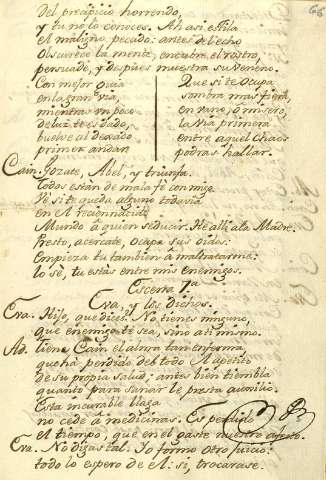 66
Del precipicio horrendo,
y tu no lo conoces. Ah asi estila
el maligno pecado: antes del echo
Obscurece la mente, encubre el rostro,
persuade, y despues muestra su veneno.
Con mejor guia
en la gran via,
mientras un poco
de luz te es dado,
buelve al dexado
primer andar.
Que si te ocupa
sombra mas fiera,
en vano, o misero,
la via primera
entre aquel Chaos
podras hallar.
Cain. Gozate, Abel, y triunfa.
Todos estan de mala fe conmigo.
Ve si te queda alguno todavia
en el reconciliado
Mundo a quien seducir. He alli a la Madre:
Presto, acercate, ocupa sus oidos:
Empieza tu tambien a maltratarme:
lo sé, tu estás entre mis enemigos.
Escena 7ª
Eva, y los dichos.
Eva. Hijo, que dices? No tienes ninguno,
que enemigo te sea, sino a ti mismo.
Ad. tiene Cain el alma tan enferma,
que ha perdido del todo el apetito
de su propia salud; antes bien tiembla
quanto para sanar le presta auxilio.
Esta incurable llaga
no cede a medicinas. Es perdido
el tiempo, que en el gaste nuestro afecto.
Eva. No digas tal. Yo formo otro juicio:
todo lo espero de el: si, trocarase.